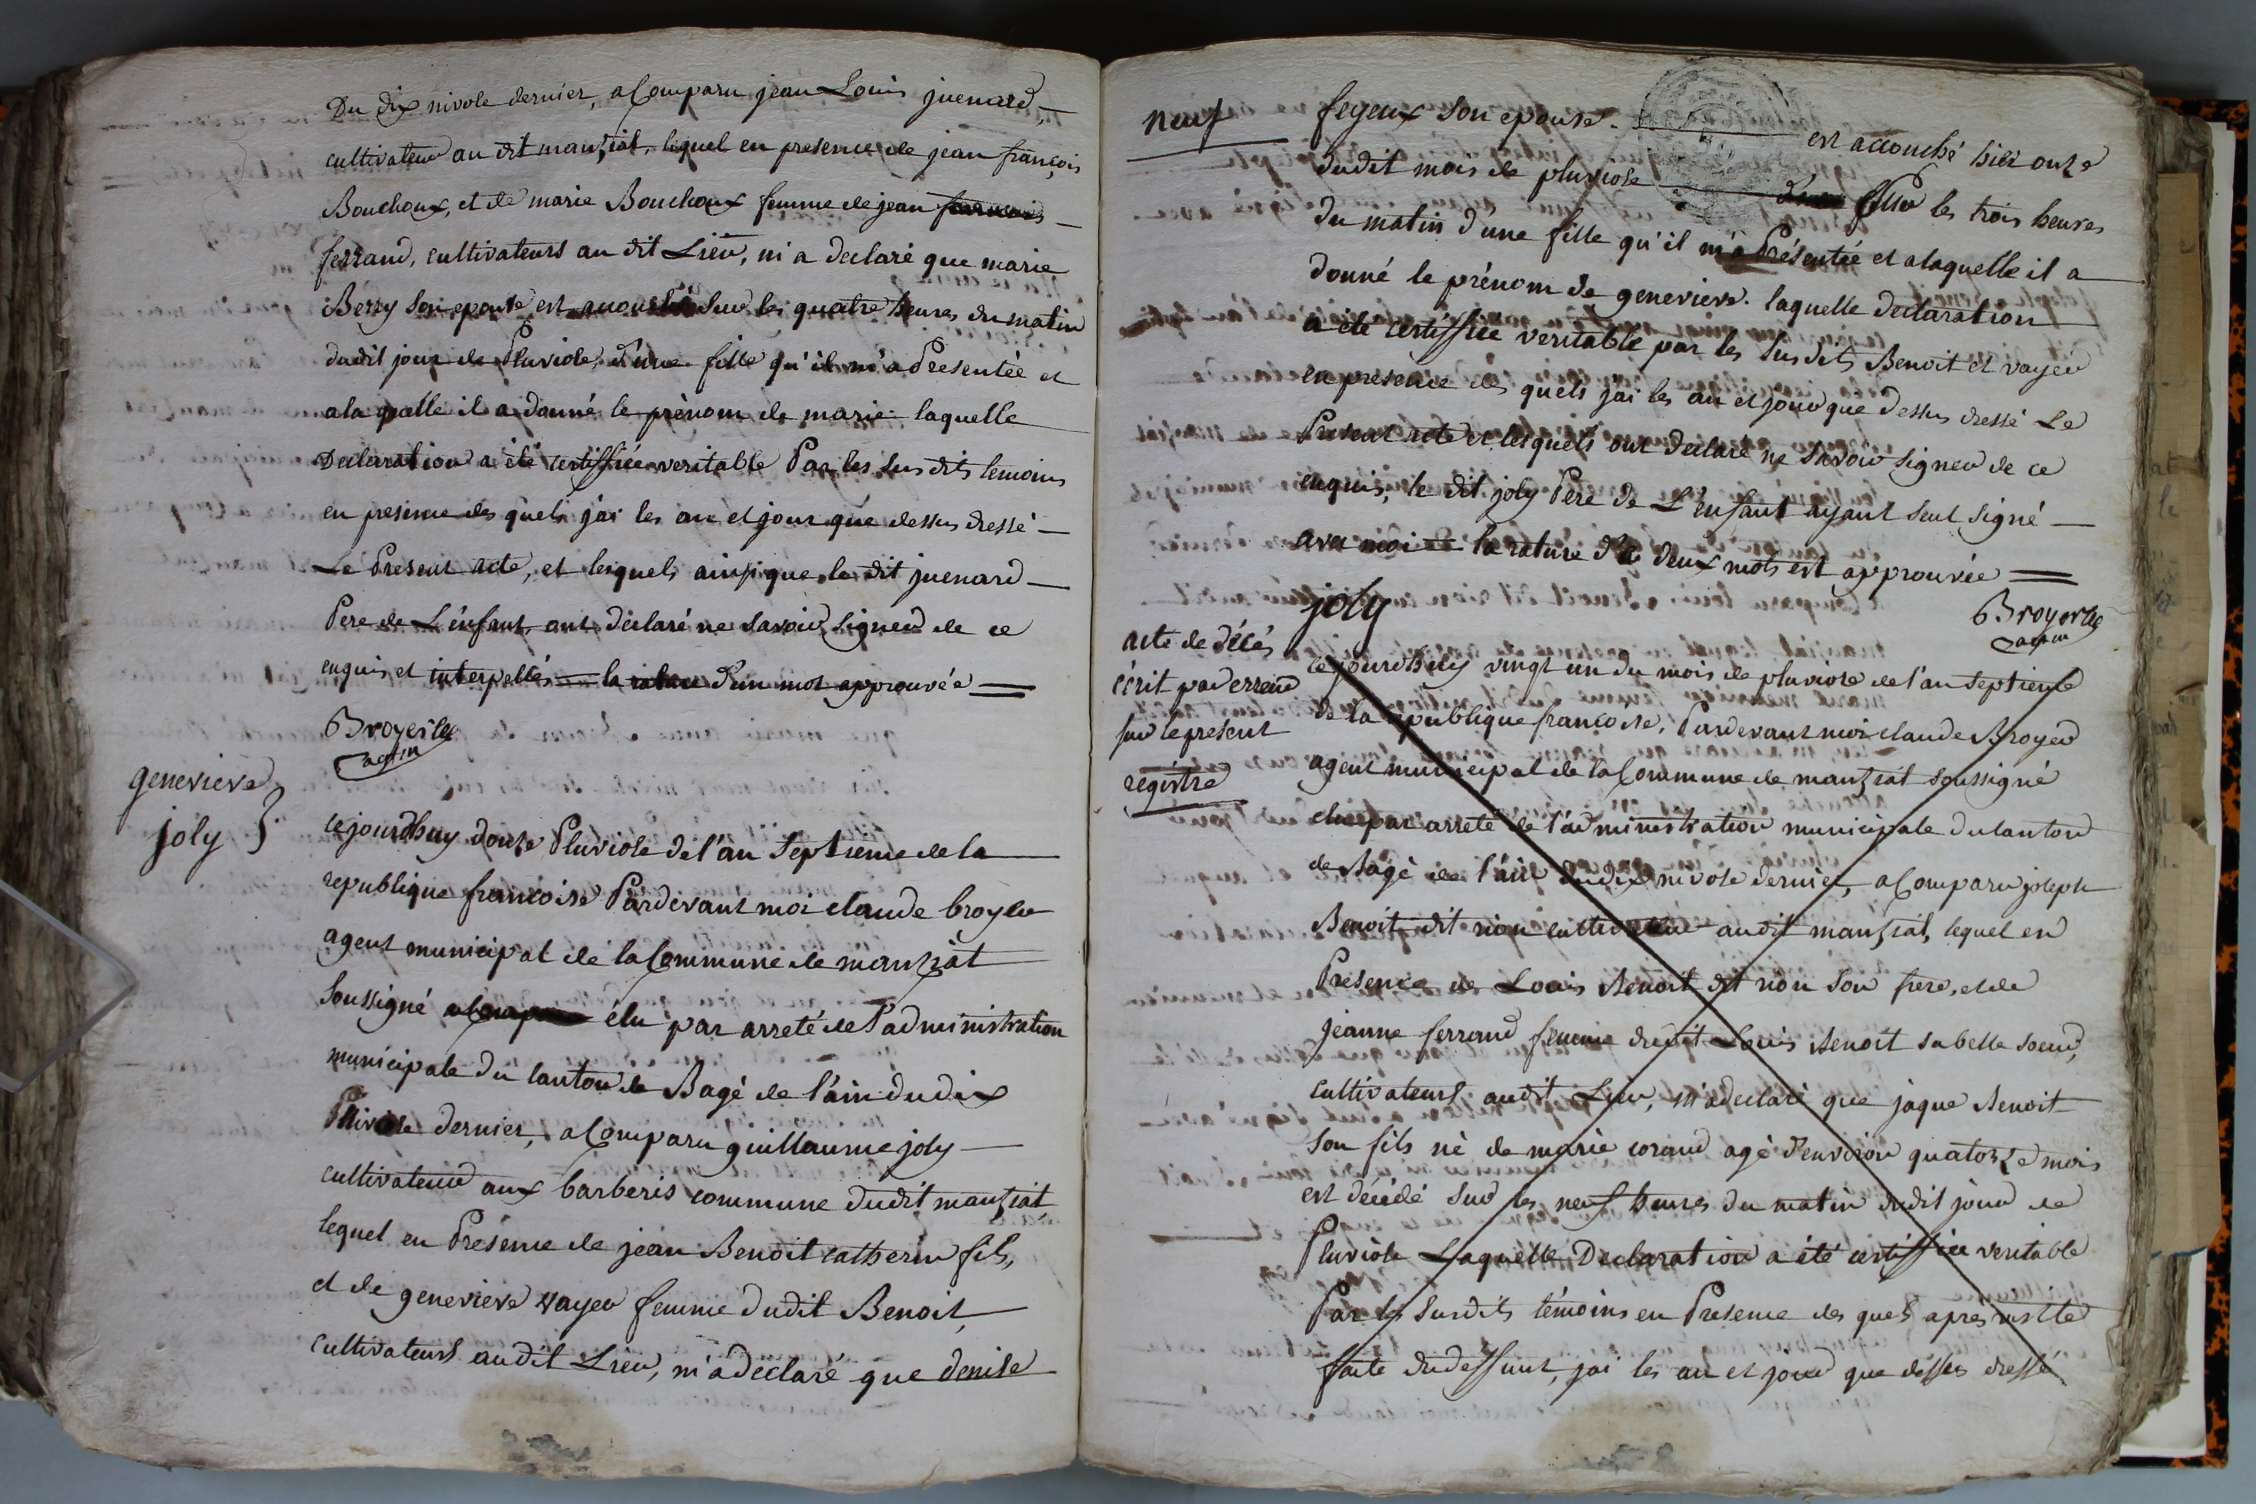 Du dix nivose dernier, a Comparu jean Louis juenard
cultivateur au dit manziat, lequel en presence de jean françois
Bouchoux, et de marie Bouchoux femme de jean francois
ferrand, cultivateurs au dit Lieu, m'a declaré que marie
Berry son epouse est accouchée sur les quatre heures du matin
dudit jour de Pluviose, d'une fille qu'il m'a Presentée et
a la quelle il a donné le prènom de marie laquelle
Declaration a été certiffiée veritable Par les sus dits temoins
en presence des quels j'ai les an et jour que dessus dressé
Le Present acte, et lesquels ainsi que le dit juenard
Pere de L'enfant, ont déclaré ne savoir signer de ce
enquis et interpellés = la rature d'un mot approuvée =
Broyer
agm
genevieve
joly }
cejourdhuy douze Pluviose de l'an Septieme de la
republique francoise Pardevant moi claude broyer
agent municipal de la Commune de manziat
Soussigné élu par arreté de l'administration
municipale du canton de Bagé de l'ain du dix
nivose dernier, a Comparu guillaume joly
cultivateur aux barberis commune dudit manziat,
lequel en Présence de jean Benoit catherin fils,
et de genevieve vayer femme dudit Benoit,
cultivateurs audit Lieu, m'a declaré que denise
neuf
feyeux son epouse est accouché hier onze
dudit mois de pluviose sur les trois heures
du matin d'une fille qu'il m'a Présentée et a laquelle il a
donné le prénom de genevieve. laquelle declaration
a été certiffiée veritable par les susdits Benoit et vayer
en presence des quels j'ai les an et jour que dessus dressé Le
Present acte et lesquels ont declaré ne savoir signer de ce
enquis, le dit joly Pere de L'enfant ayant seul signé
avec moi = la rature de deux mots est approuvée =
joly
Broyer
agm
acte de décés
écrit par erreur
sur le présent
registre
cejourdhuy vingt un du mois de pluviose de l'an septieme
de la republique francoise, Pardevant moi claude Broyer
agent municipal de la Commune de manziat soussigné
elu par arreté de l'administration municipale du canton
de Bagé de l'ain du dix nivose dernier, a Comparu joseph
Benoit dit rion cultivateur audit manziat, lequel en
Présence de Louis Benoit dit rion son frere, et de
jeanne ferrand femme dudit Louis Benoit sa belle soeur,
cultivateurs audit Lieu, m'a declaré que jaque Benoit
son fils né de marie corand agé d'environ quatorze mois
est décédé sur les neuf heures du matin dudit jour de
Pluviose Laquelle Declaration a été certiffiée veritable
Par les Susdits témoins en Presence des quels après visitte
faite du deffunt, j'ai les an et jour que dessus dressé